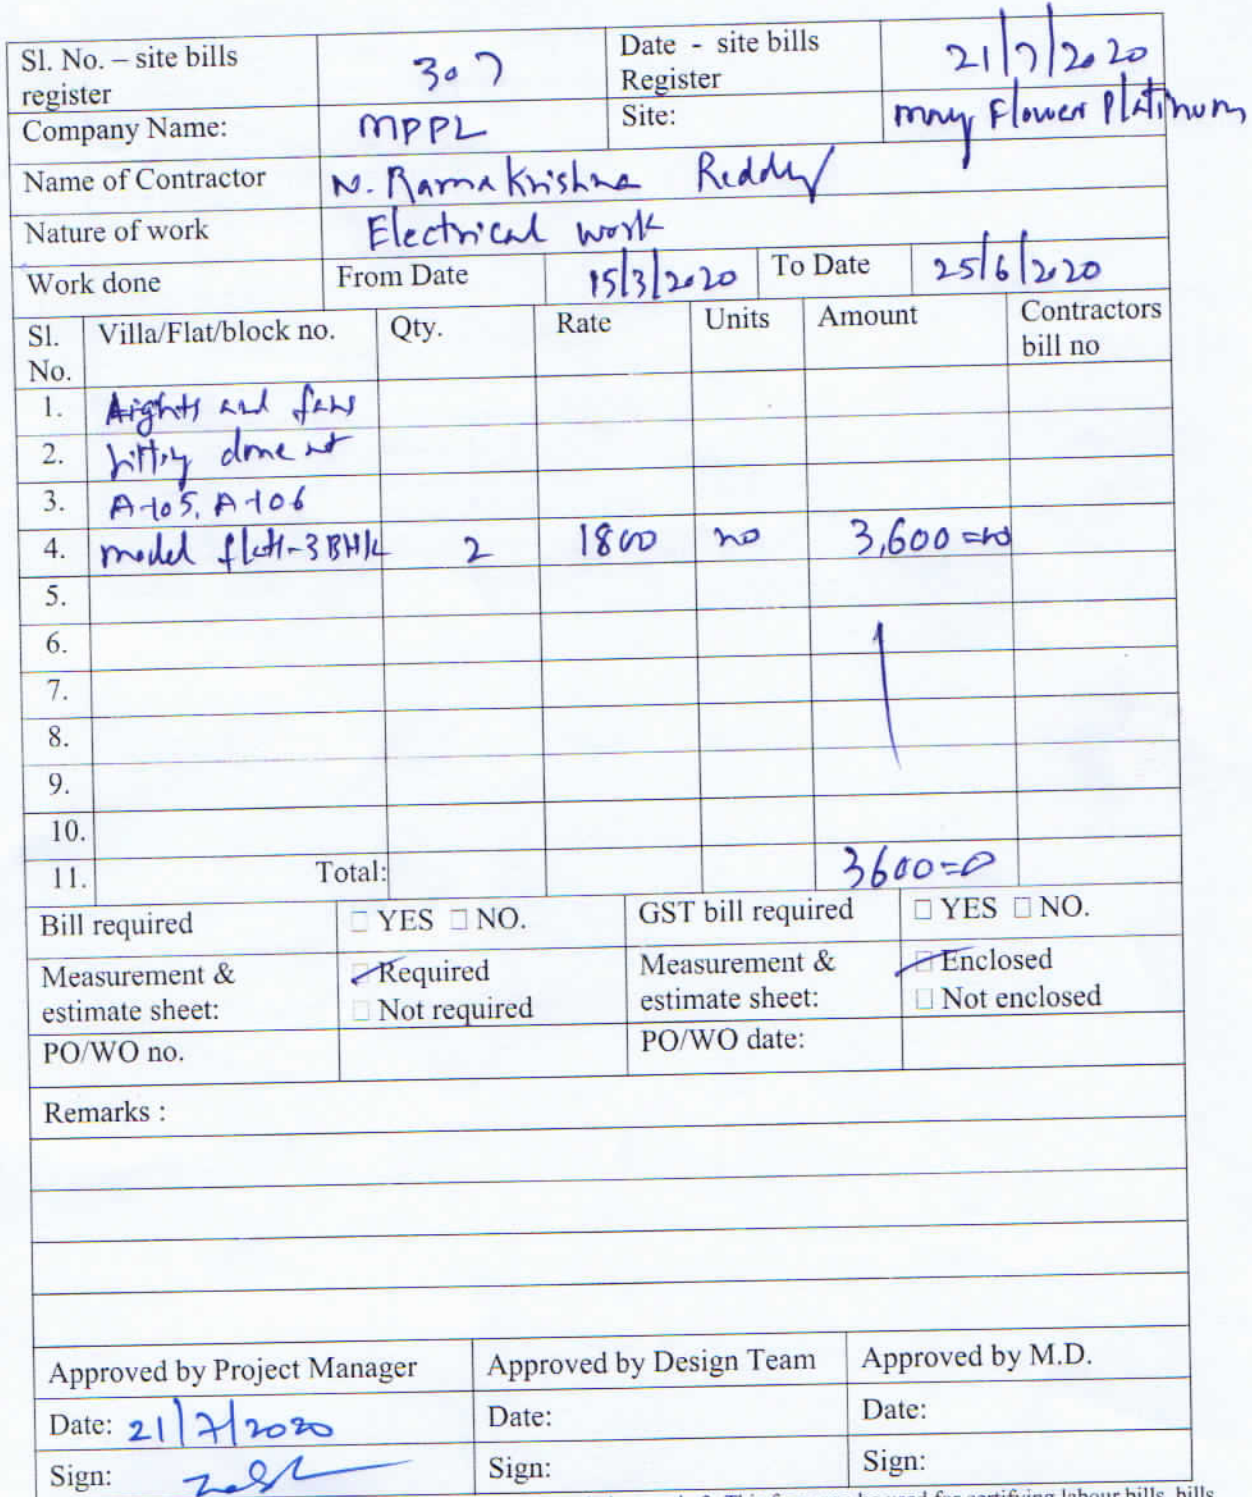 Sl. No. – site bills register 307 Date - site bills Register 21/7/2020
Company Name: MPPL Site: may Flower Platinum
Name of Contractor N. Rama Krishna Reddy
Nature of work Electrical work
Work done From Date 15/3/2020 To Date 25/6/2020
Sl. No. Villa/Flat/block no. Qty. Rate Units Amount Contractors bill no
1. Lights and fans
2. fitting done at
3. A-105, A-106
4. model flat-3BHK 2 1800 no 3,600=00
5.
6.
7.
8.
9.
10.
11. Total: 3600=0
Bill required □ YES □ NO. GST bill required □ YES □ NO.
Measurement & estimate sheet: Required Measurement & estimate sheet: Enclosed
□ Not required □ Not enclosed
PO/WO no. PO/WO date:
Remarks :
Approved by Project Manager Approved by Design Team Approved by M.D.
Date: 21/7/2020 Date: Date:
Sign: Sign: Sign: